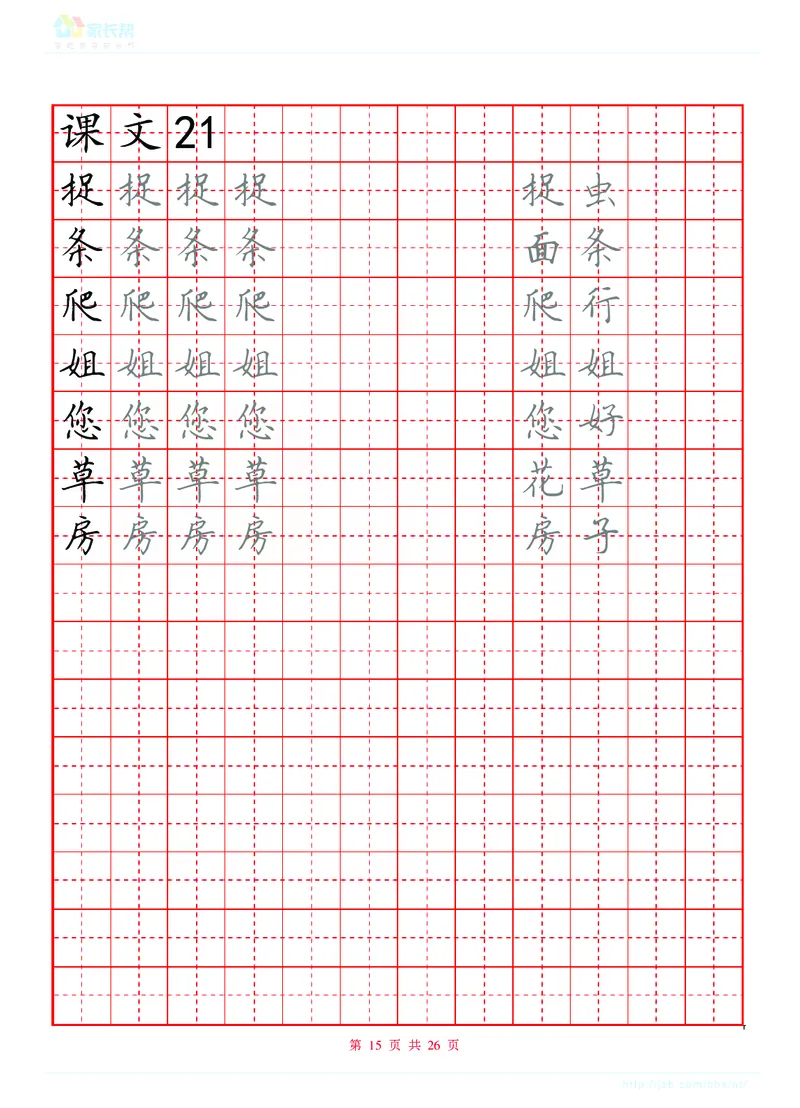 家长帮
课文21
捉捉捉捉 捉虫
条条条条 面条
爬爬爬爬 爬行
姐姐姐姐 姐姐
您您您您 您好
草草草草 花草
房房房房 房子
第 15 页 共 26 页